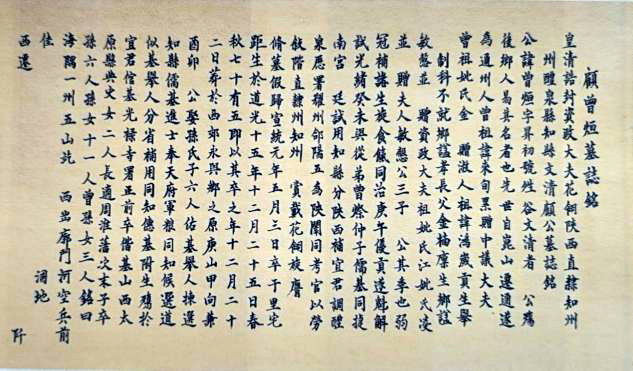 顧曾烜墓誌銘
皇清誥封資政大夫花翎陝西直隸知州
州醴泉縣知縣文清顧公墓誌銘
公諱曾烜字昇初號姓谷文清者　公歿
後鄉人易其名者也先世自崑山遷通遂
為通州人曾祖諱來旬累贈中議大夫
曾祖妣氏金　贈淑人祖諱鴻歲貢生舉
制科不就鄉諡孝長父金楠廩生鄉諡
敏慤並　贈資政大夫祖妣氏江妣氏凌
並　贈夫人敏慤公三子　公其季也弱
冠補諸生旋食餼同治庚午優貢遂解
試光緒癸未與從弟曾燦仲子儒基同捷
南宮　廷試用知縣分陝西補宜君調醴
泉歷署雒州郃陽五為陝闈同考官以勞
敘階直隸州知州　賞戴花翎旋膺
脩墓假歸宣統元年五月三日卒于里宅
距生於道光十五年十二月二十五日春
秋七十有五即以其卒之年十二月二十
二日葬於西郊永興鄉之原庚山甲向兼
酉卯　公娶孫氏子六人佶基舉人揀選
知縣儒基進士奉天府軍粮同知候選道
似基舉人分省補用同知億基附生殤於
宜君信基光祿寺署正前卒偕基山西太
原縣典史女二人長適周淮藩次末字卒
孫六人孫女十一人曾孫女三人銘曰
海隅一州五山訖　西出廓門河空兵前
佳　洞地
西遷　阡